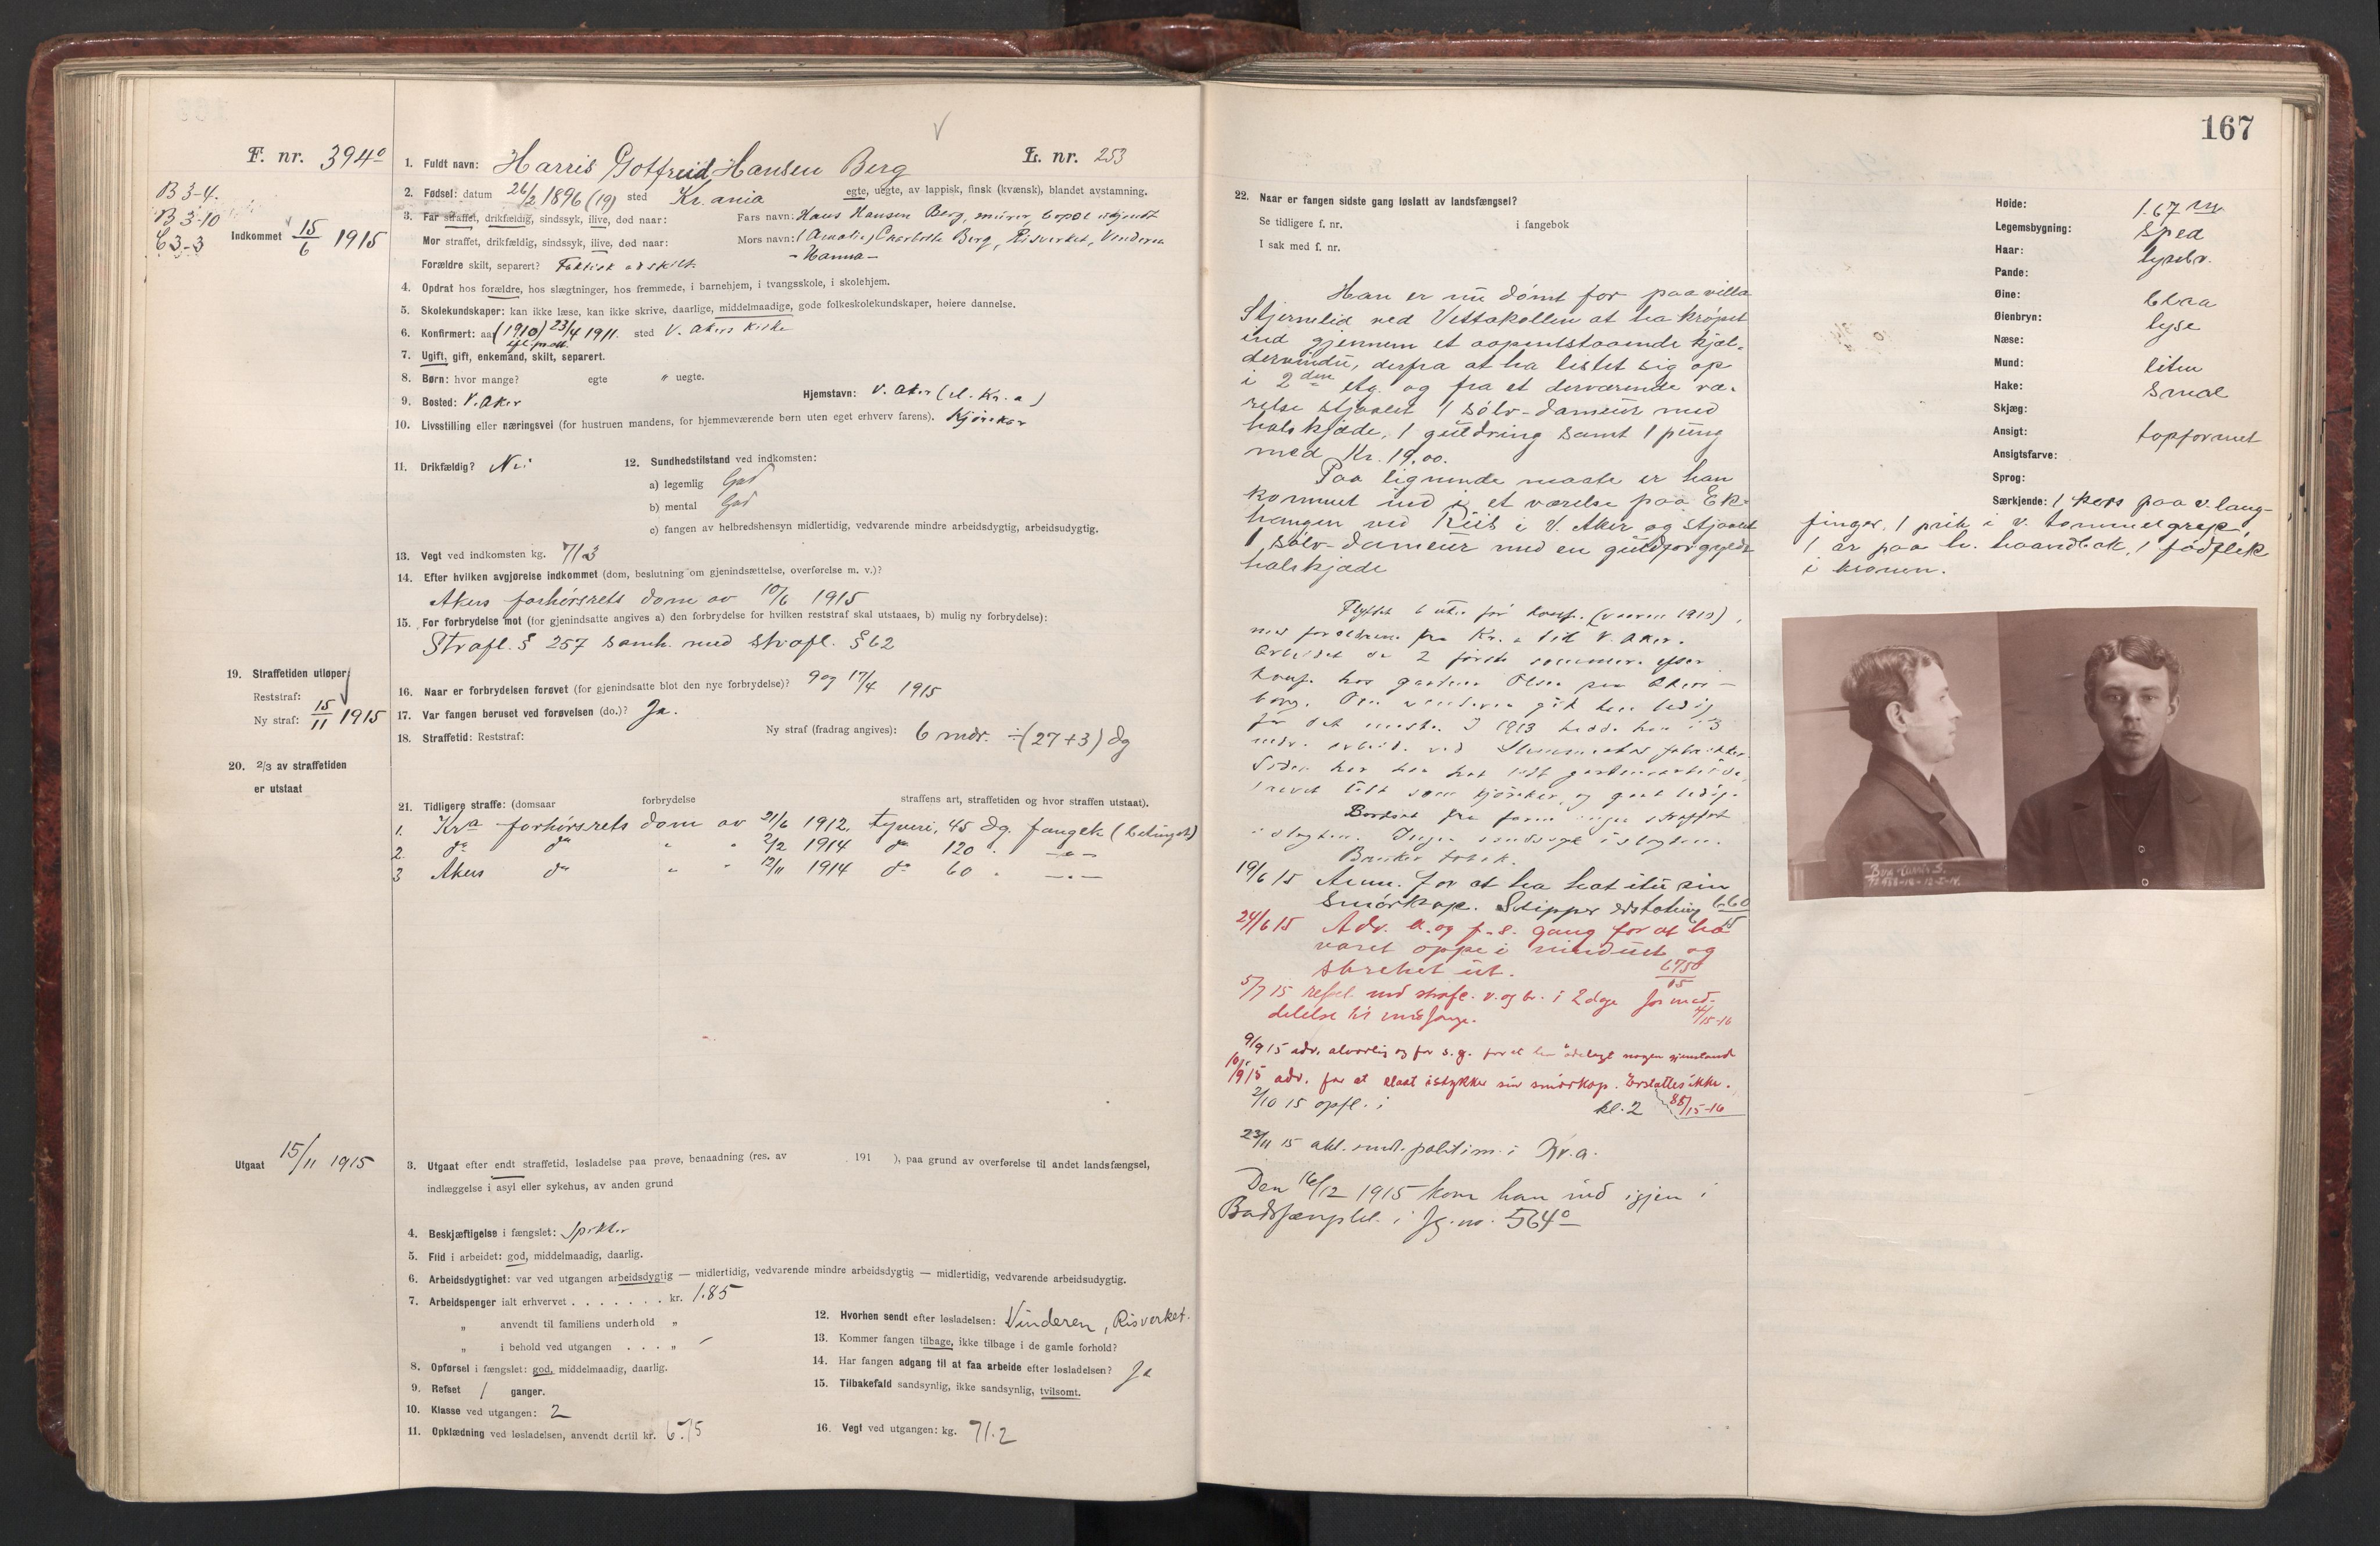 F. nr. 394º
B 3-4.
B 3-10
C 3-3
Indkommet 15/6 1915
1. Fuldt navn: Harris Gotfried Hansen Berg
L. nr. 253
2. Fødsel: datum 26/2 1896 (19) sted Kr.ania egte, uegte, av lappisk, finsk (kvænsk), blandet avstamning.
3. Far straffet, drikfældig, sindssyk, ilive, død naar: Fars navn: Hans Hansen Berg, murer, bopæl ukjendt
Mor straffet, drikfældig, sindssyk, ilive, død naar: Mors navn: (Amalie) Charlotte Berg, Risverket, Vinderen
- Hanna -
Forældre skilt, separert? Faktisk adskilt.
4. Opdrat hos forældre, hos slægtninger, hos fremmede, i barnehjem, i tvangsskole, i skolehjem.
5. Skolekundskaper: kan ikke læse, kan ikke skrive, daarlige, middelmaadige, gode folkeskolekundskaper, høiere dannelse.
6. Konfirmert: aar (1910) 23/4 1911. sted V. Akers Kirke
7. Ugift, gift, enkemand, skilt, separert.
8. Børn: hvor mange? egte " uegte.
9. Bosted: V. Aker Hjemstavn: V. Aker (el. Kr.a)
10. Livsstilling eller næringsvei (for hustruen mandens, for hjemmeværende børn uten eget erhverv farens). Kjørekar
11. Drikfældig? Nei 12. Sundhedstilstand ved indkomsten:
a) legemlig God
b) mental God
c) fangen av helbredshensyn midlertidig, vedvarende mindre arbeidsdygtig, arbeidsudygtig.
13. Vegt ved indkomsten kg. 71.3
14. Efter hvilken avgjørelse indkommet (dom, beslutning om gjenindsættelse, overførelse m. v.)?
Akers forhørsrets dom av 10/6 1915
15. For forbrydelse mot (for gjenindsatte angives a) den forbrydelse for hvilken reststraf skal utstaaes, b) mulig ny forbrydelse):
Strafl. § 257 samh. med strafl. § 62
19. Straffetiden utløper
Reststraf:
Ny straf: 15/11 1915
16. Naar er forbrydelsen forøvet (for gjenindsatte blot den nye forbrydelse)? 9 og 17/4 1915
17. Var fangen beruset ved forøvelsen (do.)? Ja.
18. Straffetid: Reststraf: Ny straf (fradrag angives): 6 mdr. ÷ (27+3) dg
20. 2/3 av straffetiden
er utstaat
21. Tidligere straffe: (domsaar forbrydelse straffens art, straffetiden og hvor straffen utstaat).
1. Kra forhørsrets dom av 21/6 1912, tyveri, 45 dg. fængsl (betinget)
2. do do " " 2/2 1914 do 120 " -"-
3 Akers do " " 12/11 1914 do 60 " -"-
Utgaat 15/11 1915
3. Utgaat efter endt straffetid, løsladelse paa prøve, benaadning (res. av 191 ), paa grund av overførelse til andet landsfængsel,
indlæggelse i asyl eller sykehus, av anden grund
4. Beskjæftigelse i fængslet: Spikker
5. Flid i arbeidet: god, middelmaadig, daarlig.
6. Arbeidsdygtighet: var ved utgangen arbeidsdygtig — midlertidig, vedvarende mindre arbeidsdygtig — midlertidig, vedvarende arbeidsudygtig.
7. Arbeidspenger ialt erhvervet . . . . . . . kr. 1.85
" anvendt til familiens underhold "
" i behold ved utgangen . . . "
8. Opførsel i fængslet: god, middelmaadig, daarlig.
9. Refset 1 ganger.
10. Klasse ved utgangen: 2
11. Opklædning ved løsladelsen, anvendt dertil kr. 6.75
12. Hvorhen sendt efter løsladelsen: Vinderen, Risverket.
13. Kommer fangen tilbage, ikke tilbage i de gamle forhold?
14. Har fangen adgang til at faa arbeide efter løsladelsen? Ja
15. Tilbakefald sandsynlig, ikke sandsynlig, tvilsomt.
16. Vegt ved utgangen: kg. 71.2
167
22. Naar er fangen sidste gang løslatt av landsfængsel?
Se tidligere f. nr. i fangebok
I sak med f. nr.
Han er nu dømt for paa villa
Stjernelid ved Vettakollen at ha krøpet
ind gjennem et aapentstaaende kjæl-
dervindu, derfra at ha listet sig op
i 2den etg. og fra et derværende væ-
relse stjaalet 1 sølv-dameur med
halskjæde, 1 guldring samt 1 pung
med Kr. 19.00.
Paa lignende maate er han
kommet ind i et værelse paa Ek-
haugen ved Riis i V. Aker og stjaalet
1 sølv-dameur med en guldforgyldt
halskjæde
Flyttet 6 uker før konf. (vaaren 1910),
med forældrene fra Kr.a til V. Aker.
Arbeidet de 2 første sommere efter
konf. hos gartner Olsen paa Akers-
borg. Om vinteren gik han ledig
for det meste. I 1913 hadde han i 3
mdr. arbeide ved
Siden har han hat lidt gartnerarbeide,
litt som kjørekar, og gaat ledig.
Bortset fra faren ingen straffet
i slegten. Ingen sindssyk i slegten.
Bruker tobak.
19/6 15 Anm. for at ha hat itu sin
smørkop. Slipper erstatning 660/15
24/6 15 Adv. a. og f. s. gang for at ha
været oppe i vinduet og
skreket ut. 675/15
5/7 15 refset med strafc. v. og br. i 2 dage for med-
delelse til medfange. 4/15-16
9/9 15 adv. alvorlig og for s. g. for at ha ødelagt nogen
10/9 15 adv. for at slaat istykker sin smørkop. Erstattes ikke.
2/10 15 opfl. i kl. 2 88/15-16
23/11 15 akt. med. politim. i Kr.a.
Den 16/12 1915 kom han ind igjen i
Bodsfængslet i fg. no. 564º
Høide: 1.67 m
Legemsbygning: sped
Haar: lysebr.
Pande:
Øine: blaa
Øienbryn: lyse
Næse:
Mund: liten
Hake: smal
Skjæg:
Ansigt: topformet
Ansigtsfarve:
Sprog:
Særkjende: 1 kors paa v. lang-
finger, 1 prik i v. tommelgrep,
1 ar paa h. haandbak, 1 fødflek
i kronen.